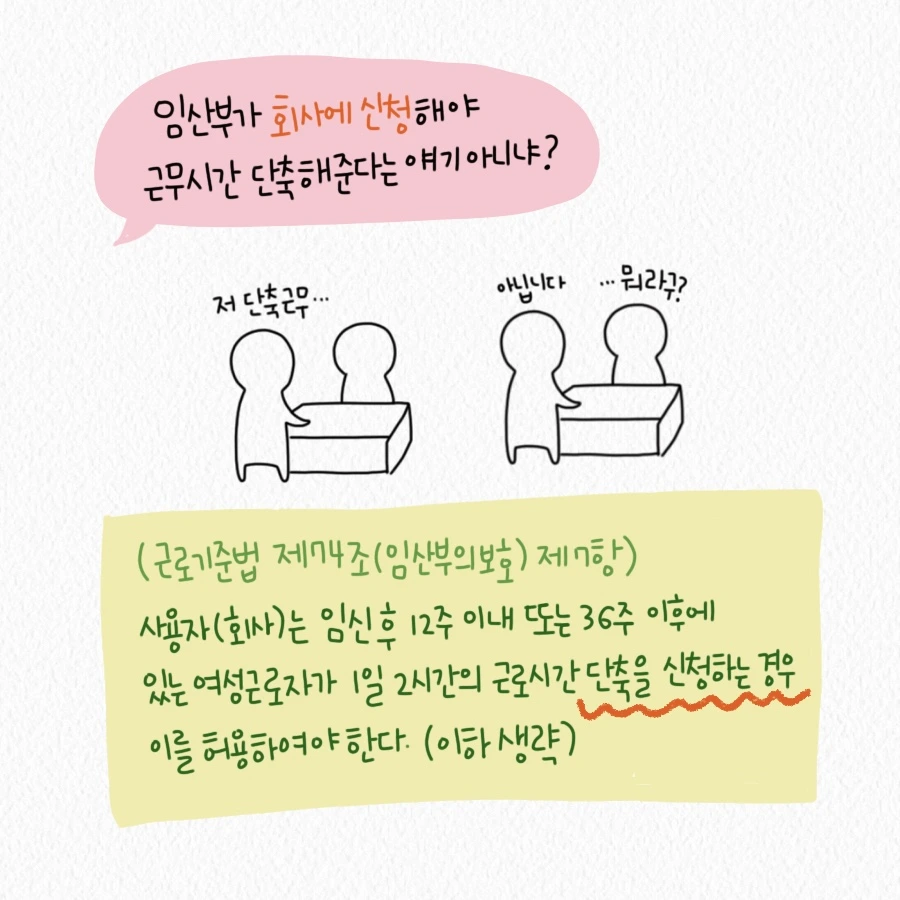 임산부가 회사에 신청해야
근무시간 단축해준다는 얘기 아니냐?
저 단축근무...
아닙니다
...뭐라구?
(근로기준법 제74조(임산부의보호) 제7항)
사용자(회사)는 임신 후 12주 이내 또는 36주 이후에
있는 여성근로자가 1일 2시간의 근로시간 단축을 신청하는 경우
이를 허용하여야 한다. (이하 생략)